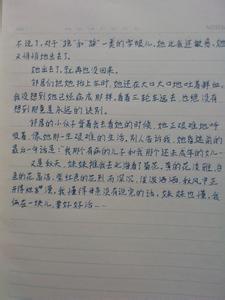 不说了。对于“跑”和“踩”一类的字眼儿,她比我还敏感。她
又悄悄地出去了。
她出去了,就再也没回来。
邻居们把她抬上车时,她还在大口大口地吐着鲜血。
我没想到她已经病成那样。看着三轮车远去,也绝没有
想到那竟是永远的诀别。
邻居的小伙子背着我去看她的时候,她正艰难地呼
吸着,像她那一生艰难的生活。别人告诉我,她昏迷前的
最后一句话是:“我那个有病的儿子和我那个还未成年的女儿…
又是秋天,妹妹推我去北海看了菊花。黄的花淡雅,白
色的花高洁,紫红色的花热烈而深沉,泼泼洒洒,秋风中正
开得烂漫。我懂得母亲没有说完的话,妹妹也懂。我
俩在一块儿,要好好活…